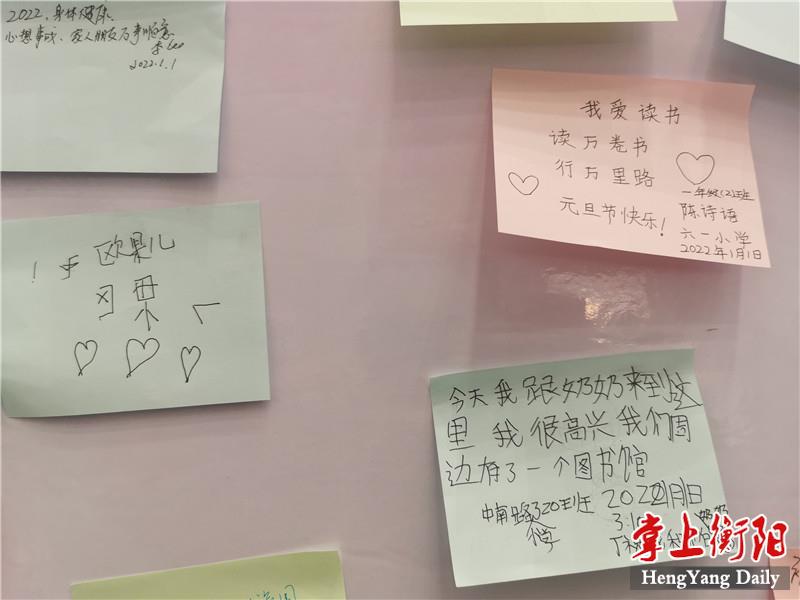 2022，身体健康，
心想事成、家人朋友万事顺意
2022.1.1
我爱读书
读万卷书
行万里路
元旦节快乐！
一年级(2)班
陈诗语
六一小学
2022年1月1日
欧果儿
今天我跟奶奶来到这
里 我很高兴我们周
边有了一个图书馆
中南路320班
2022年1月1日
掌上衡阳
HengYang Daily